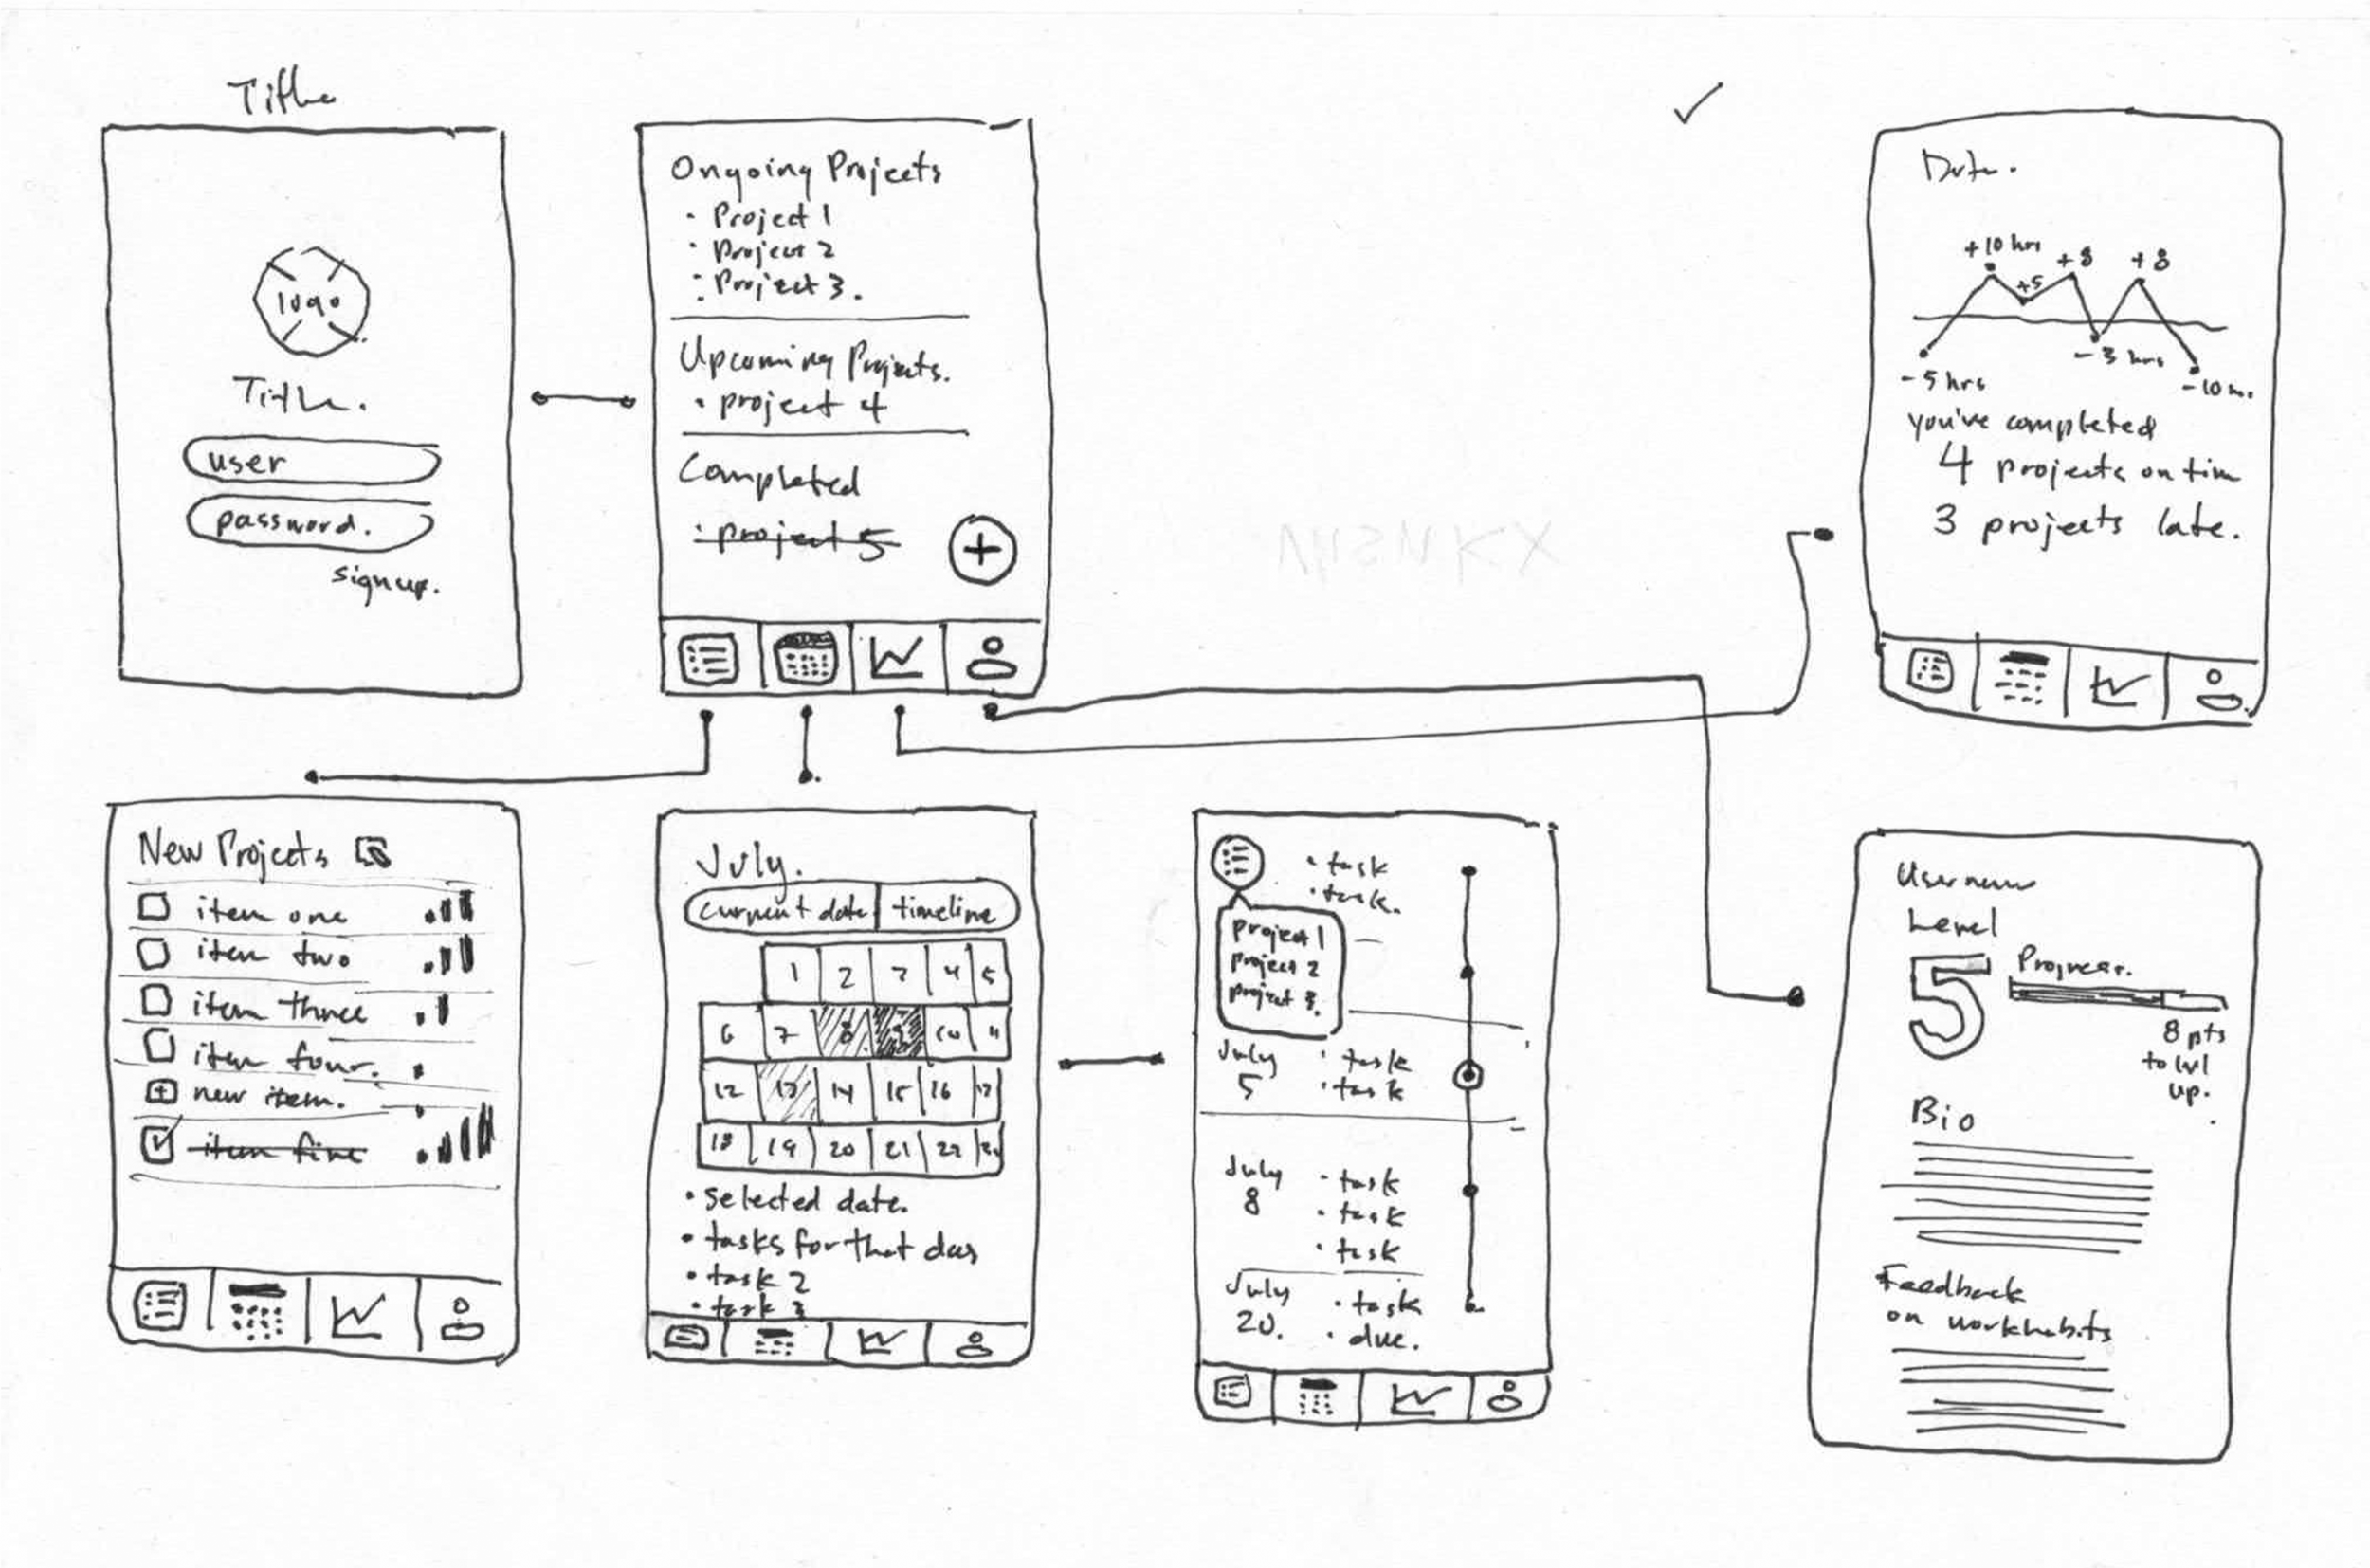 Title
logo
Title.
user
password.
signup.
Ongoing Projects
· Project 1
· Project 2
· Project 3.
Upcoming Projects.
· project 4
Completed
· project 5
+
+10 hrs
+5
+8
+8
-5 hrs
-3 hrs
-10
you've completed
4 projects on tim
3 projects late.
New Projects
item one
item two
item three
item four.
+ new item.
item five
July.
current date
timeline
1 2 3 4 5
6 7 8 9 10 11
12 13 14 15 16 17
18 19 20 21 22
• selected date.
• tasks for that day
• task 2
• task 3
· task
· task.
project 1
project 2
project 3.
July
5
· task
· task
July
8
· task
· task
· task
July
20.
· task
· due.
Level
5
Progress.
8 pts
to lvl
up.
Bio
Feedback
on workhabits